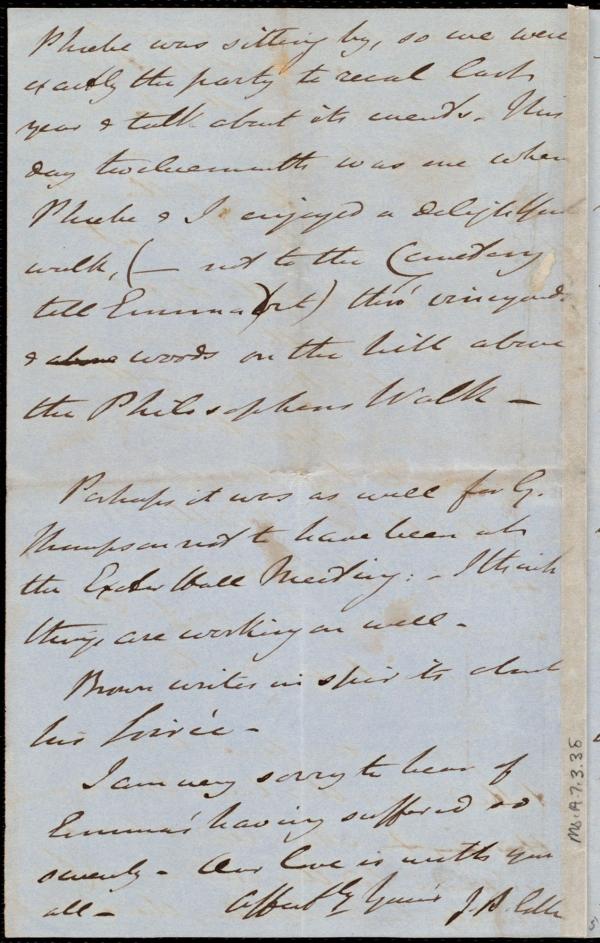 Phoebe was sitting by, so we were
exactly the party to recal last
year & talk about its events. This
day twelvemonth was one when
Phoebe & I enjoyed a delightful
walk, (— not to the Cemetery
till Emma ) thro' vineyards
& above woods on the hill above
the Philosophers Walk —
Perhaps it was as well for G.
Thompson not to have been at
the Exeter Hall Meeting: - I think
things are working on well -
Brown writes in spirits about
his Soirée -
I am very sorry to hear of
Emma's having suffered so
severely - Our love is with you
all - Affectly Yours J. B. Estlin
Ms.A.7.3.38